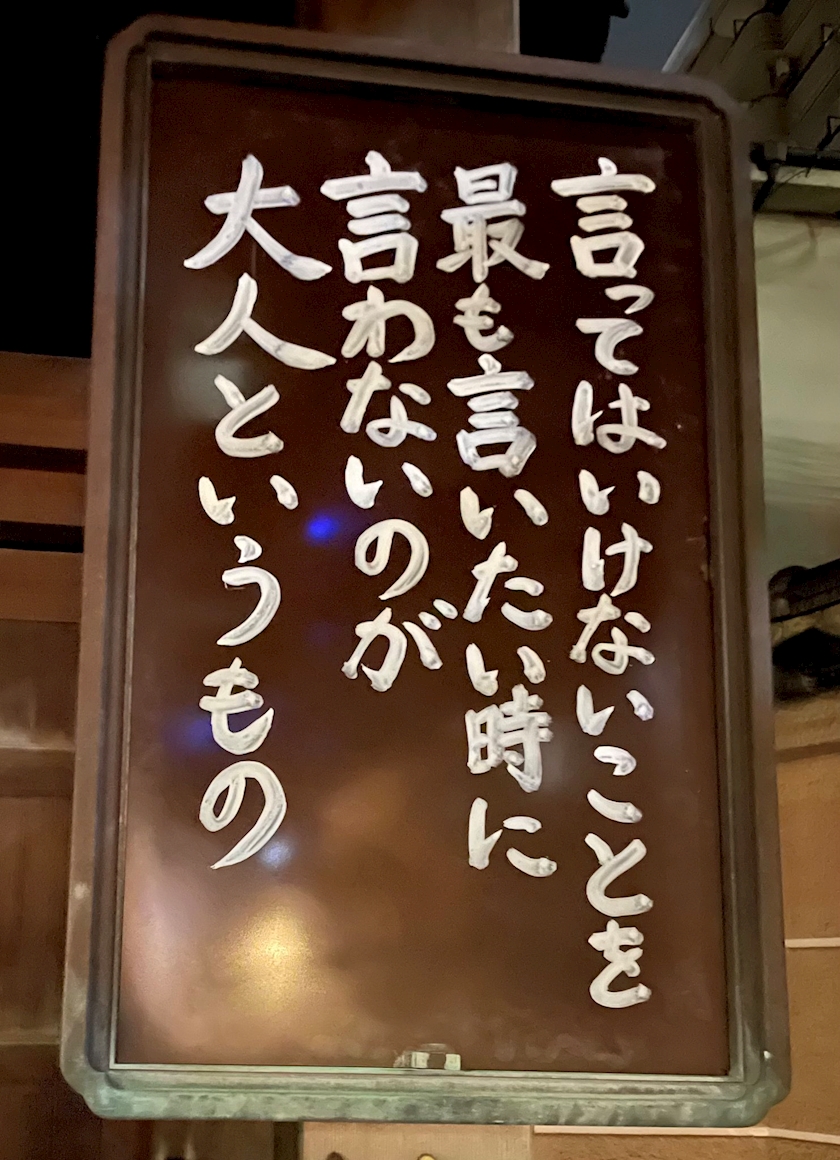 言ってはいけないことを
最も言いたい時に
言わないのが
大人というもの